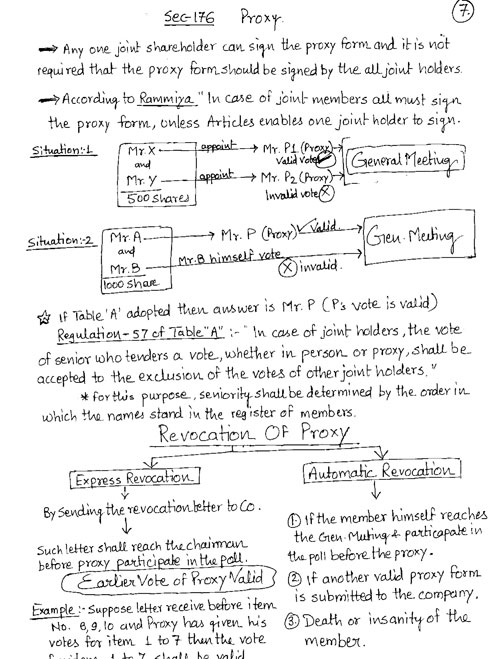 Sec-176 Proxy.
7.
→ Any one joint shareholder can sign the proxy form and it is not
required that the proxy form should be signed by the all joint holders.
→ According to Rammiya " In case of joint members all must sign
the proxy form, unless Articles enables one joint holder to sign.
Situation:-1
Mr. X appoint → Mr. P1 (Proxy)
Valid vote ✓
and
Mr. Y appoint → Mr. P2 (Proxy)
Invalid vote X
500 shares
General Meeting
Situation:-2
Mr. A → Mr. P (Proxy) ✓ Valid.
and
Mr. B Mr. B himself vote
X invalid.
1000 share
Gen. Meeting
☆ If Table 'A' adopted then answer is Mr. P (P's vote is valid)
Regulation-57 of Table "A" :- " In case of joint holders, the vote
of senior who tenders a vote, whether in person or proxy, shall be
accepted to the exclusion of the votes of other joint holders."
* for this purpose, seniority shall be determined by the order in
which the names stand in the register of members.
Revocation Of Proxy
Express Revocation
By Sending the revocation letter to Co.
Such letter shall reach the chairman
before proxy participate in the poll.
Earlier Vote of Proxy Valid
Example :- Suppose letter receive before item
No. 8, 9, 10 and Proxy has given his
votes for item 1 to 7 then the vote
for item 1 to 7 shall be valid
Automatic Revocation
1. If the member himself reaches
the Gen. Muting & particapate in
the poll before the proxy.
2 If another valid proxy form
is submitted to the company.
3 Death or insanity of the
member.